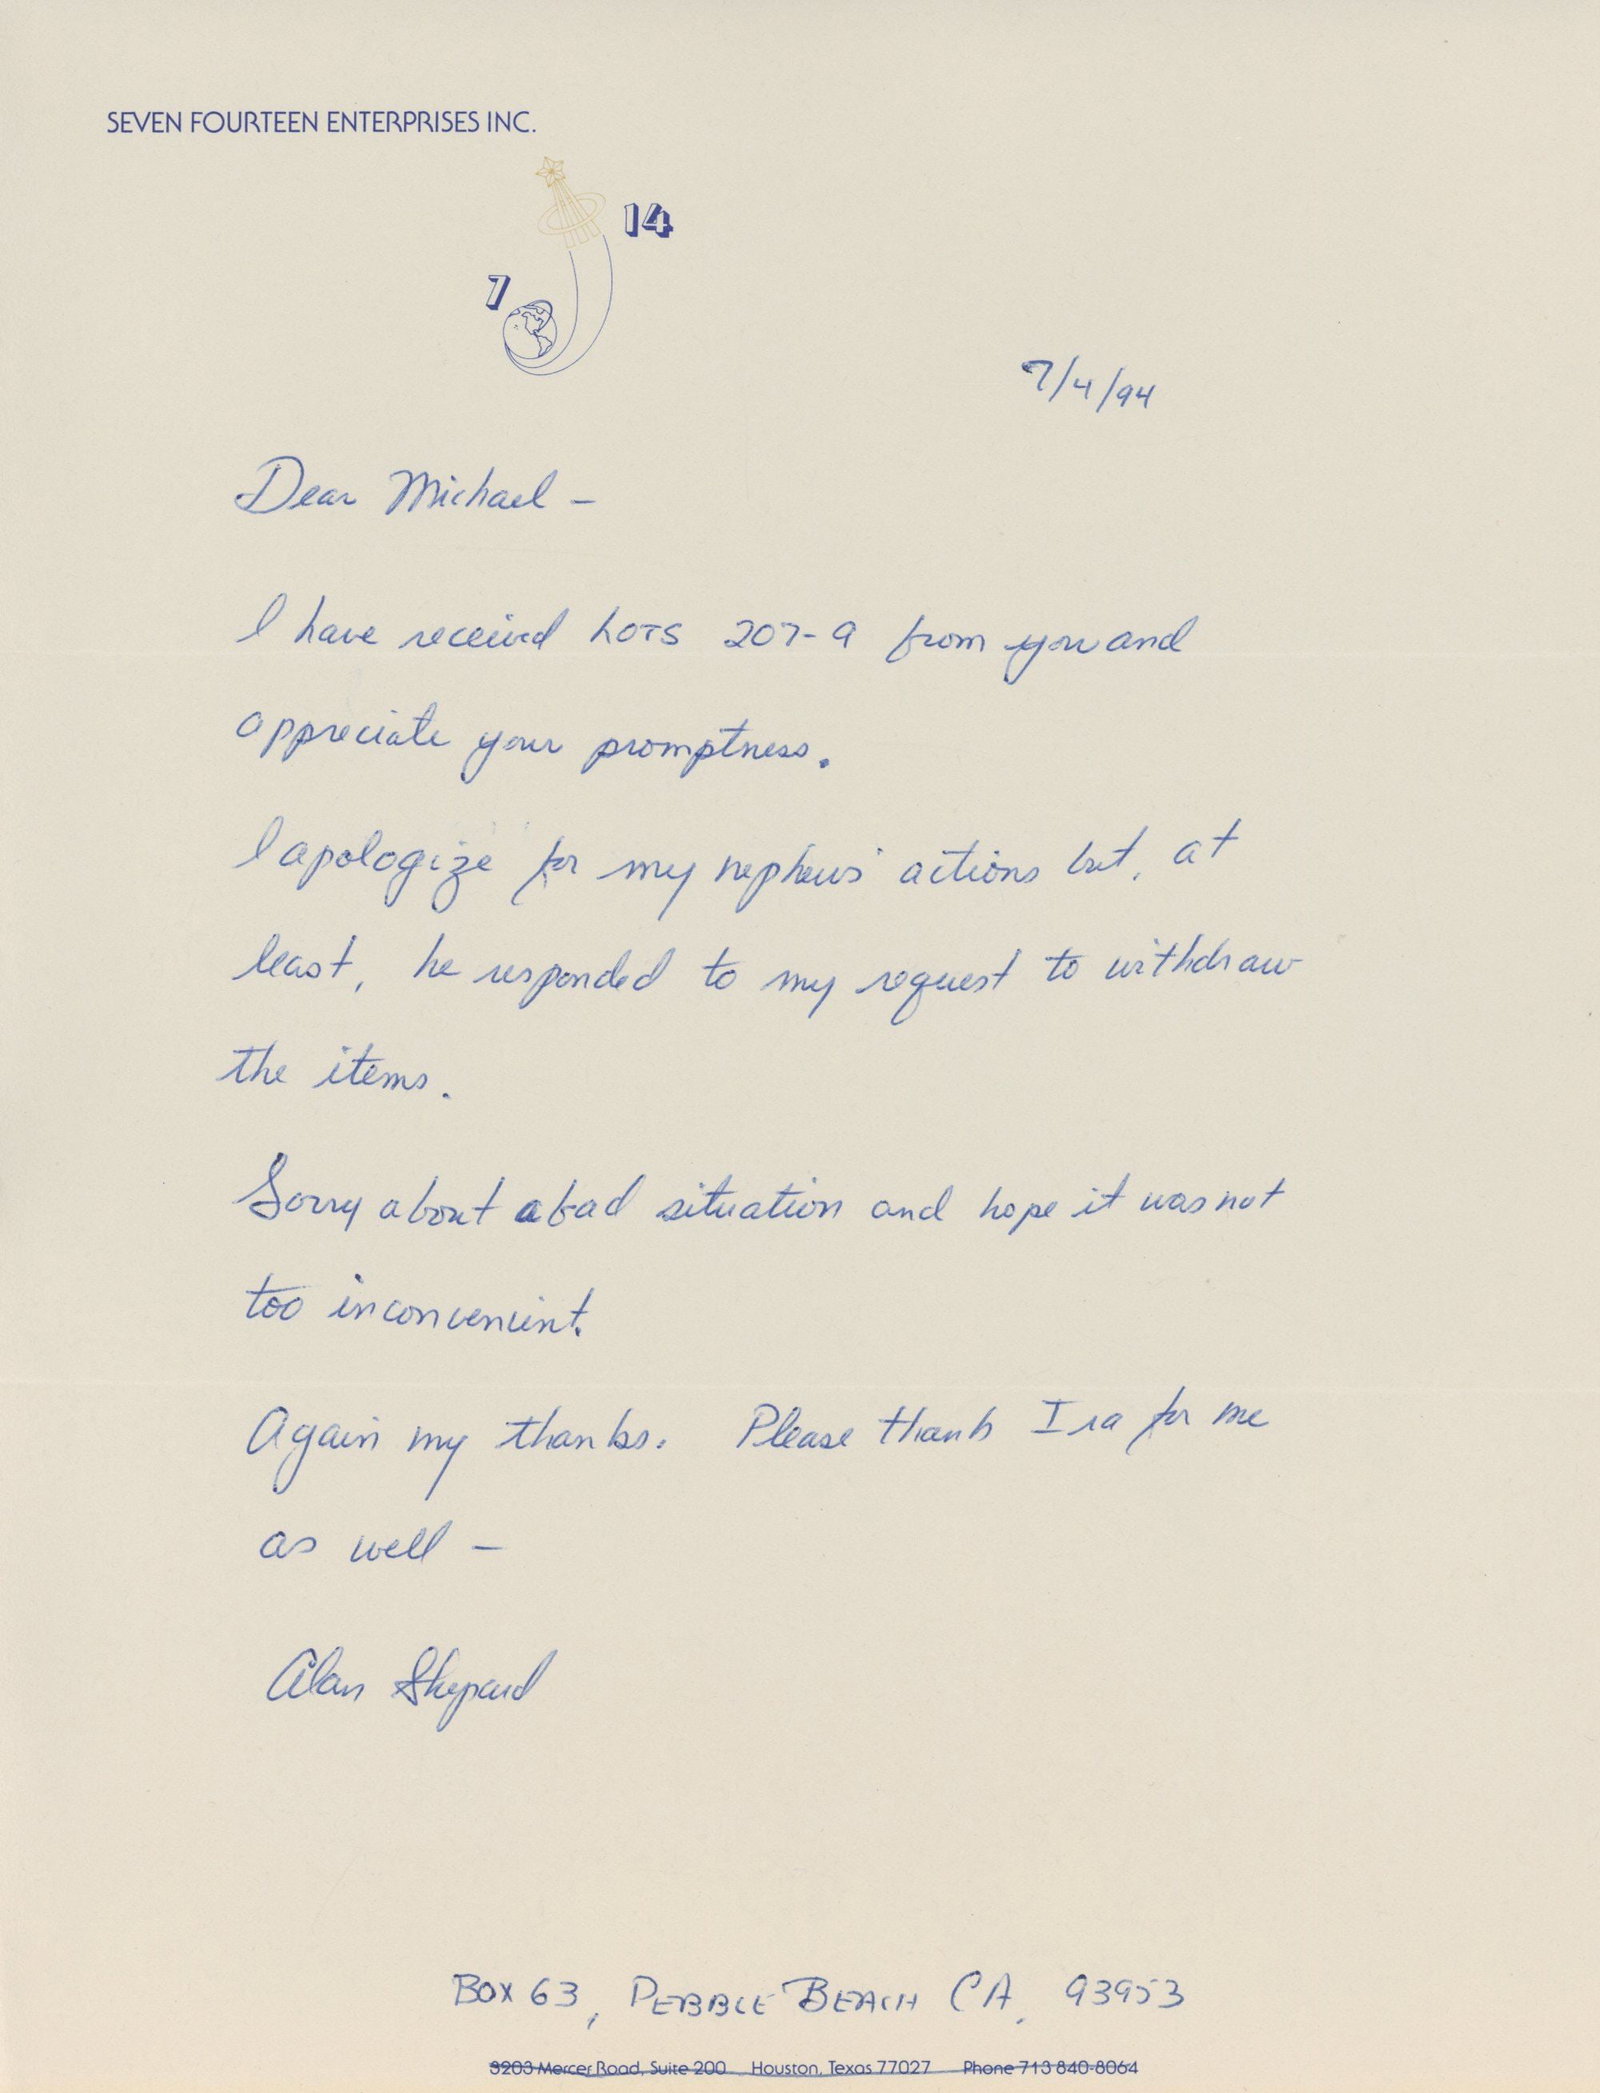 SEVEN FOURTEEN ENTERPRISES INC.
14
7
7/4/94
Dear Michael –
I have received LOTS 207-9 from you and
appreciate your promptness.
I apologize for my nephews' actions but, at
least, he responded to my request to withdraw
the items.
Sorry about a bad situation and hope it was not
too inconvenient.
Again my thanks. Please thank Ira for me
as well –
Alan Shepard
BOX 63, PEBBLE BEACH CA, 93953
3203 Mercer Road, Suite 200 Houston, Texas 77027 Phone 713 840-8064